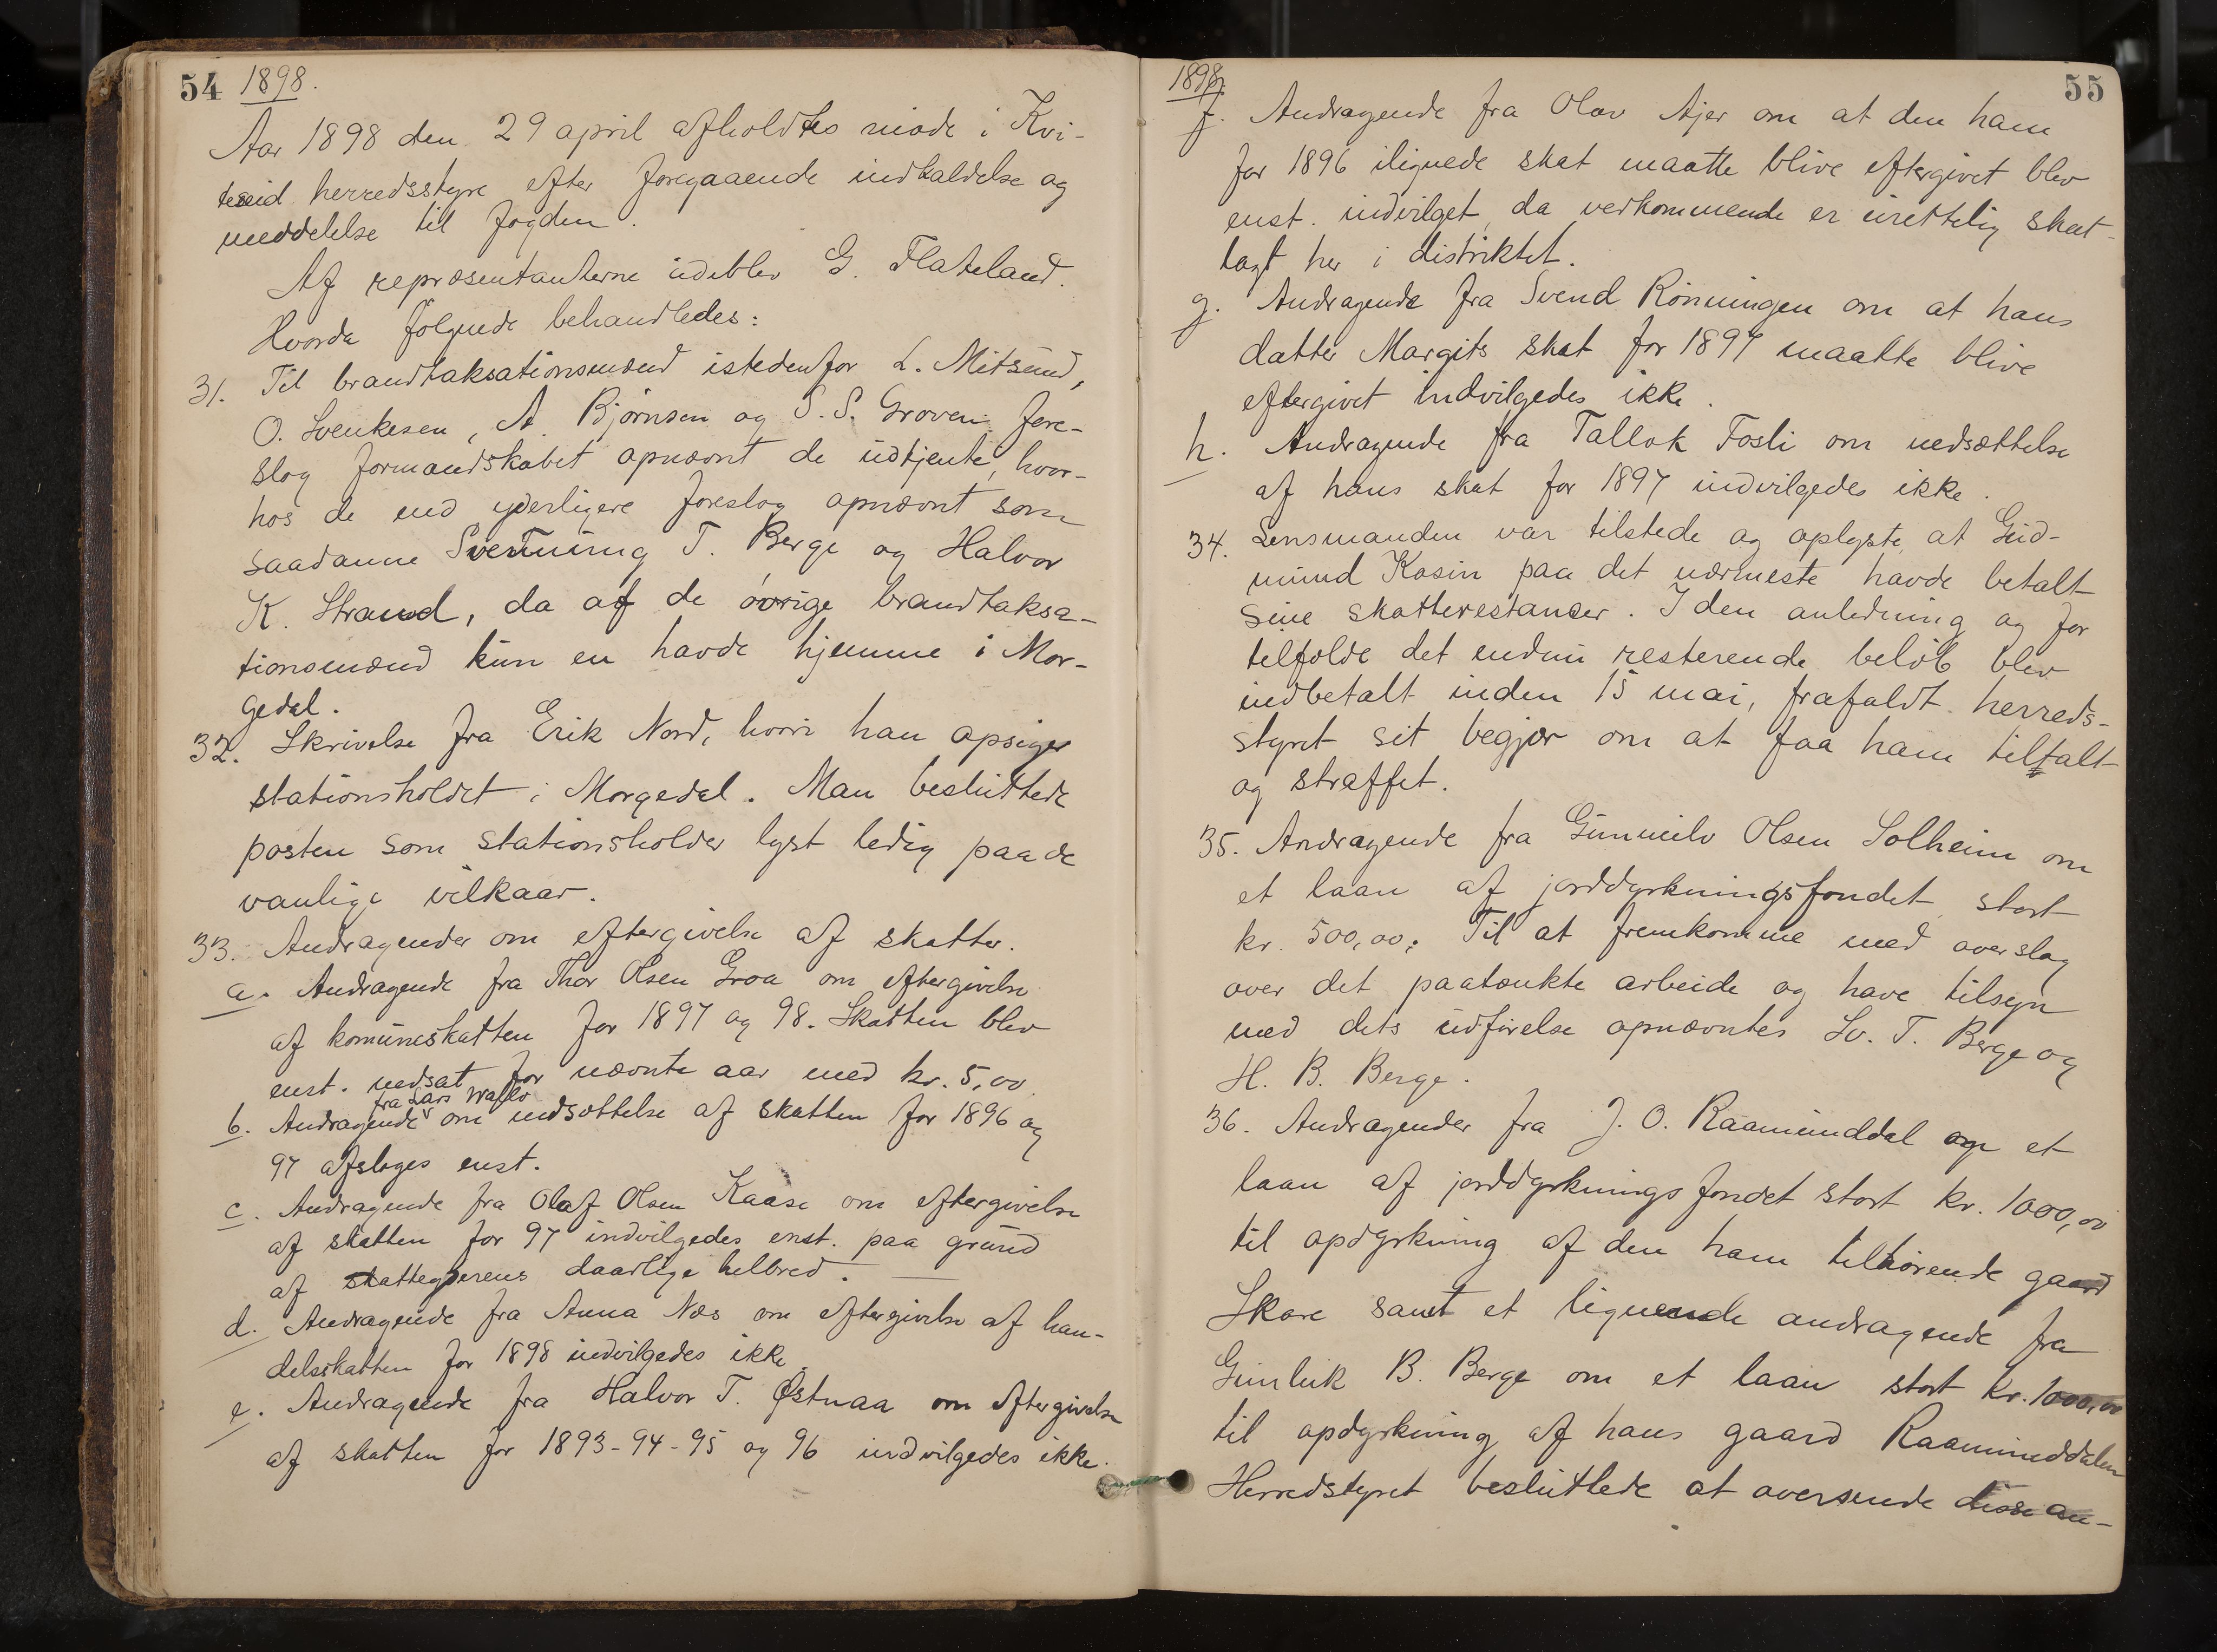 54 1898.
Aar 1898 den 29 april afholdtes møde i Kvi-
teseid herredsstyre efter foregaaende indkaldelse og
meddelelse til fogden.
Af repræsentanterne udeblev G. Flateland.
Hvorda følgnede behandledes:
31. Til brandtaksationsmænd istedenfor L. Mitsund,
O. Svenkesen, A. Bjørnsen og S. S. Groven fore-
slog formandskabet opnævnt de udtjente, hvor-
hos de end yderligere foreslog opnævnt som
saadanne Sveinung T. Berge og Halvor
K. Strand, da af de øvrige brandtaksa-
tionsmænd kun en havde hjemme i Mor-
gedal.
32. Skrivelse fra Erik Nord, hvori han opsiger
stationsholdet i Morgedal. Man besluttede
posten som stationsholder lyst ledig paa de
vanlige vilkaar.
33. Andragender om eftergivelse af skatter.
a. Andragende fra Thor Olsen Groa om eftergivelse
af komuneskatten for 1897 og 98. Skatten blev
enst. nedsat for nævnte aar med kr. 5,00
fra Lars
b. Andragende om nedsættelse af skatten for 1896 og
97 afsloges enst.
c. Andragende fra Olaf Olsen Kaase om eftergivelse
af skatten for 97 indvilgedes enst. paa grund
af skatteyderens daarlige helbred.
d. Andragende fra Anna Næs om eftergivelse af han-
delsskatten for 1898 indvilgedes ikke.
e. Andragende fra Halvor T. Østnaa om eftergivelse
af skatten for 1893-94-95 og 96 indvilgedes ikke.
1898. 55
f. Andragende fra Olav Ajer om at den ham
for 1896 ilignede skat maatte blive eftergivet blev
enst. indvilget, da vedkommende er urettelig skat-
lagt her i distriktet.
g. Andragende fra Svend Rønningen om at hans
datter Margits skat for 1897 maatte blive
eftergivet indvilgedes ikke.
h. Andragende fra Tallak Fosli om nedsættelse
af hans skat for 1897 indvilgedes ikke.
34. Lensmanden var tilstede og oplyste, at Gud-
mund Kosin paa det nærmeste havde betalt
sine skatterestancer. I den anledning og for
tilfælde det endnu resterende beløb blev
indbetalt inden 15 mai, frafaldt herreds-
styret sit begjær om at faa ham tiltalt
og straffet.
35. Andragende fra Gunneilv Olsen Solheim om
et laan af jorddyrkningsfondet stort
kr. 500,00. Til at fremkomme med overslag
over det paatænkte arbeide og have tilsyn
med dets udførelse opnævntes Sv. T. Berge og
H. B. Berge.
36. Andragender fra J. O. Raamunddal om et
laan af jorddyrkningsfondet stort kr. 1000,00
til opdyrkning af den ham tilhørende gaard
Skare samt et lignende andragende fra
Gunleik B. Berge om et laan stort kr. 1000,00
til opdyrkning af hans gaard Raamunddalen
Herredstyret besluttede at oversende disse an-